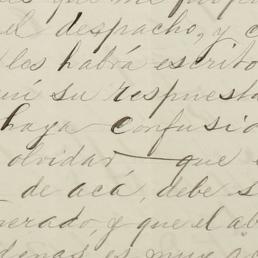 el despacho, y c
les habrá escrito
su respuesta
haya confusio
olvidar — que
de acá, debe s
erado, y que el ab
es muy